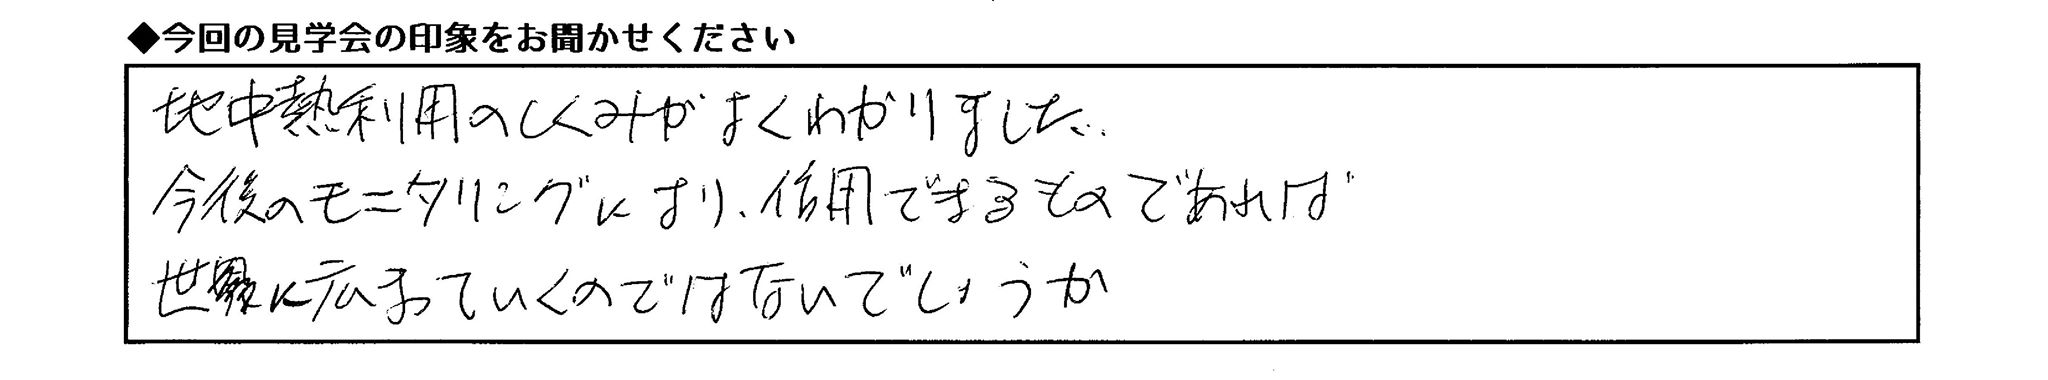 ◆今回の見学会の印象をお聞かせください
地中熱利用のしくみがよくわかりました。
今後のモニタリングにより、信用できるものであれば
世界に広まっていくのではないでしょうか